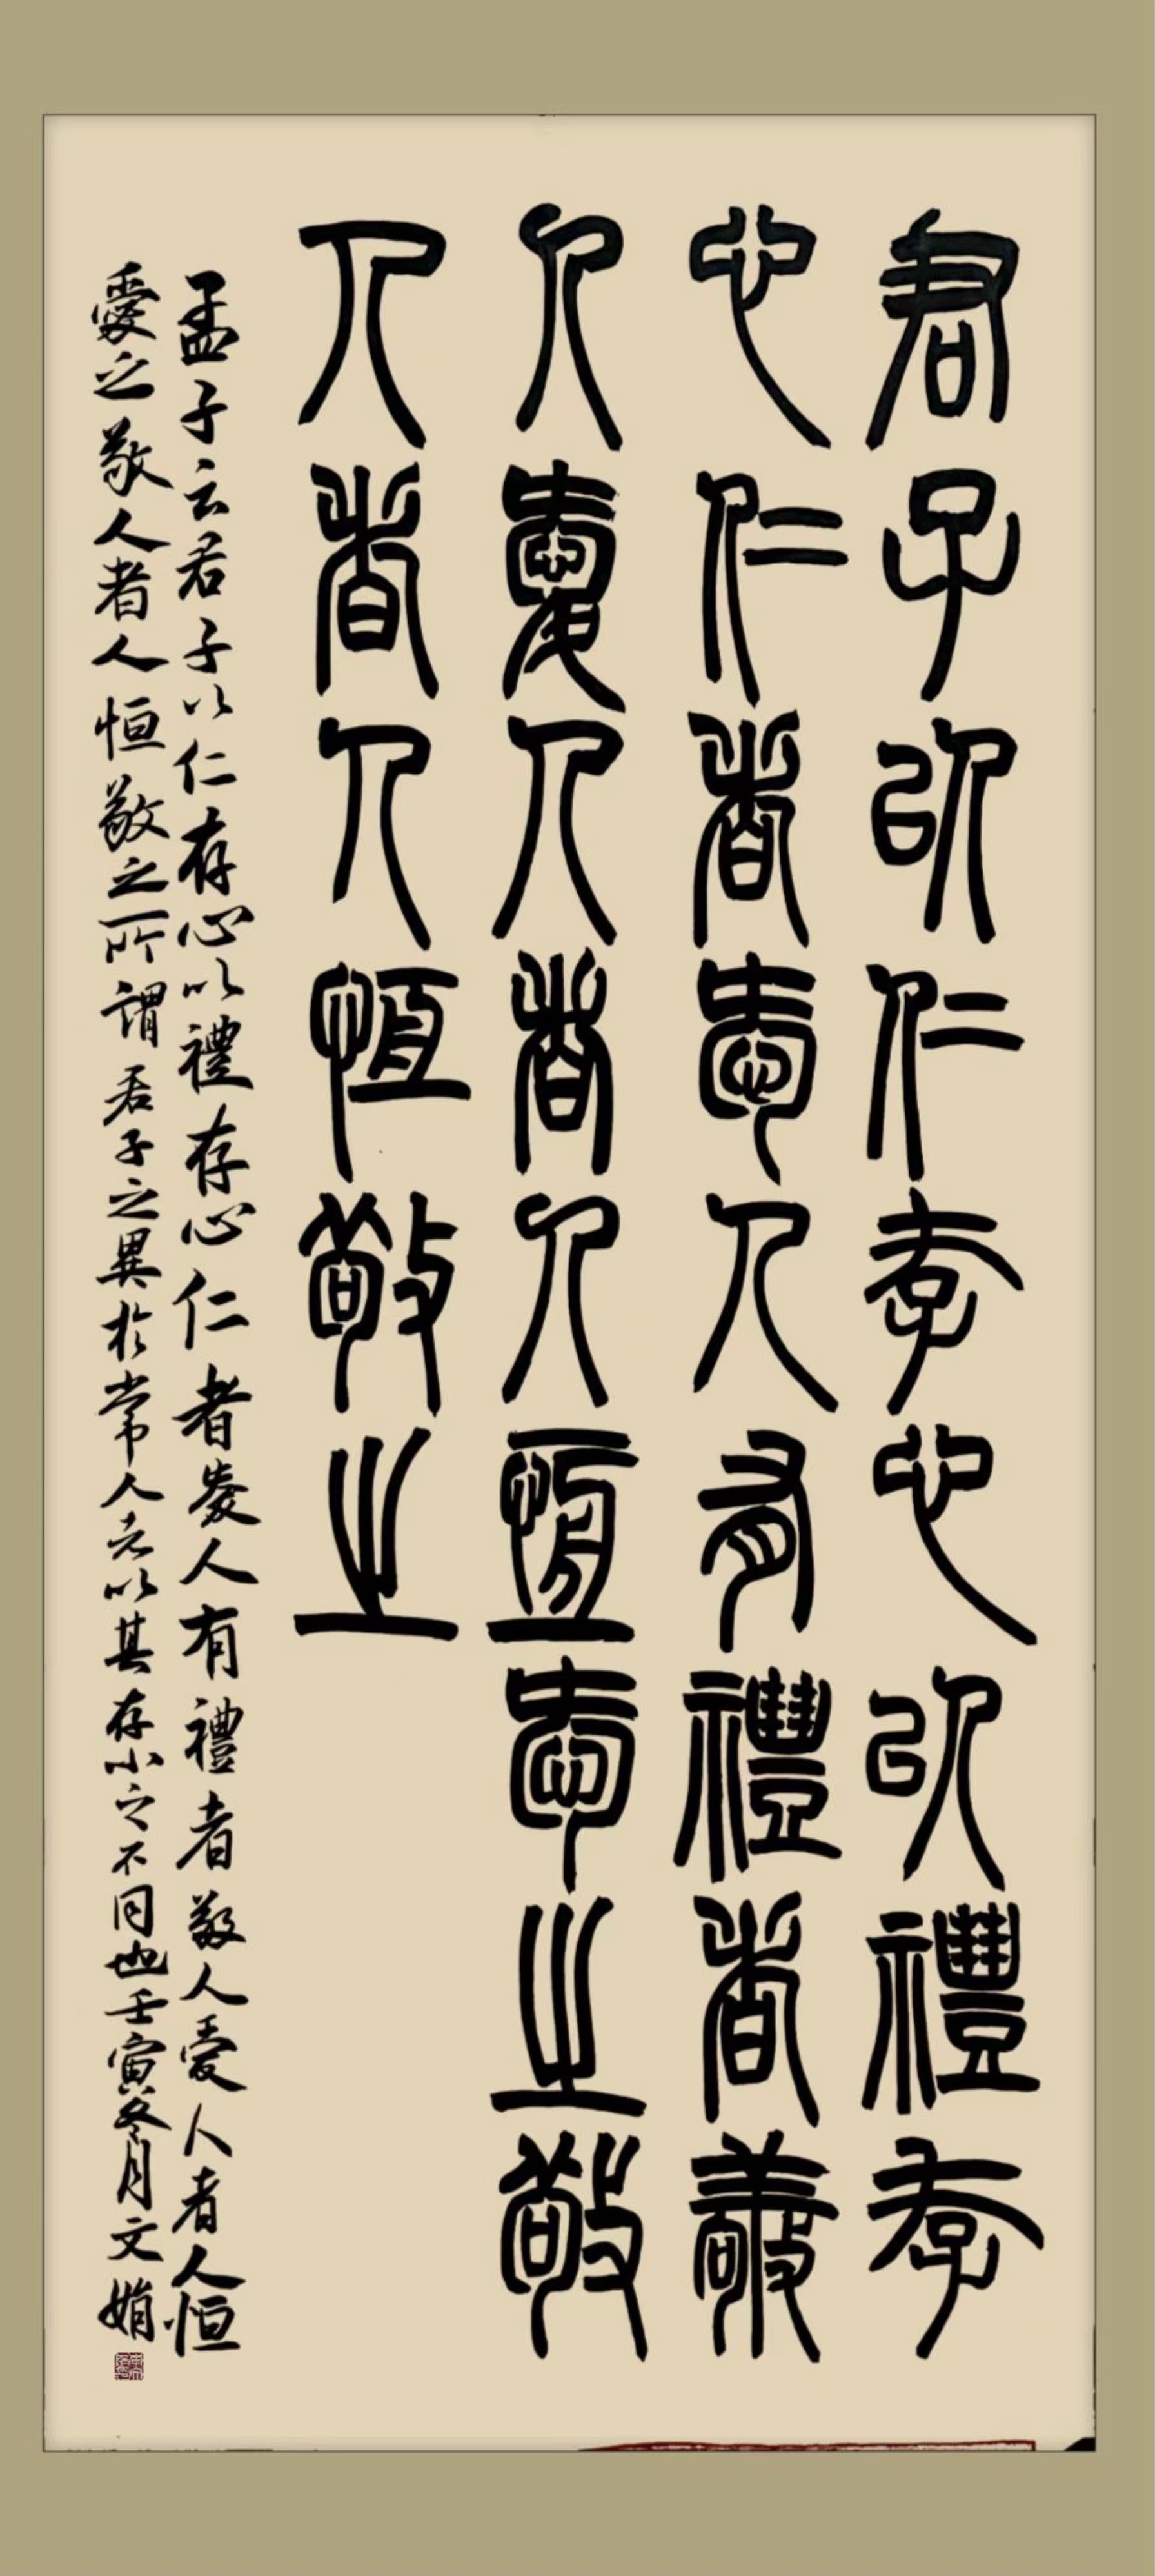 君子以仁存心以禮存
心仁者愛人有禮者敬
人愛人者人恒愛之敬
人者人恒敬之
孟子云君子以仁存心以禮存心仁者愛人有禮者敬人愛人者人恒
愛之敬人者人恒敬之所謂君子之異於常人者以其存心之不同也壬寅冬月文娟